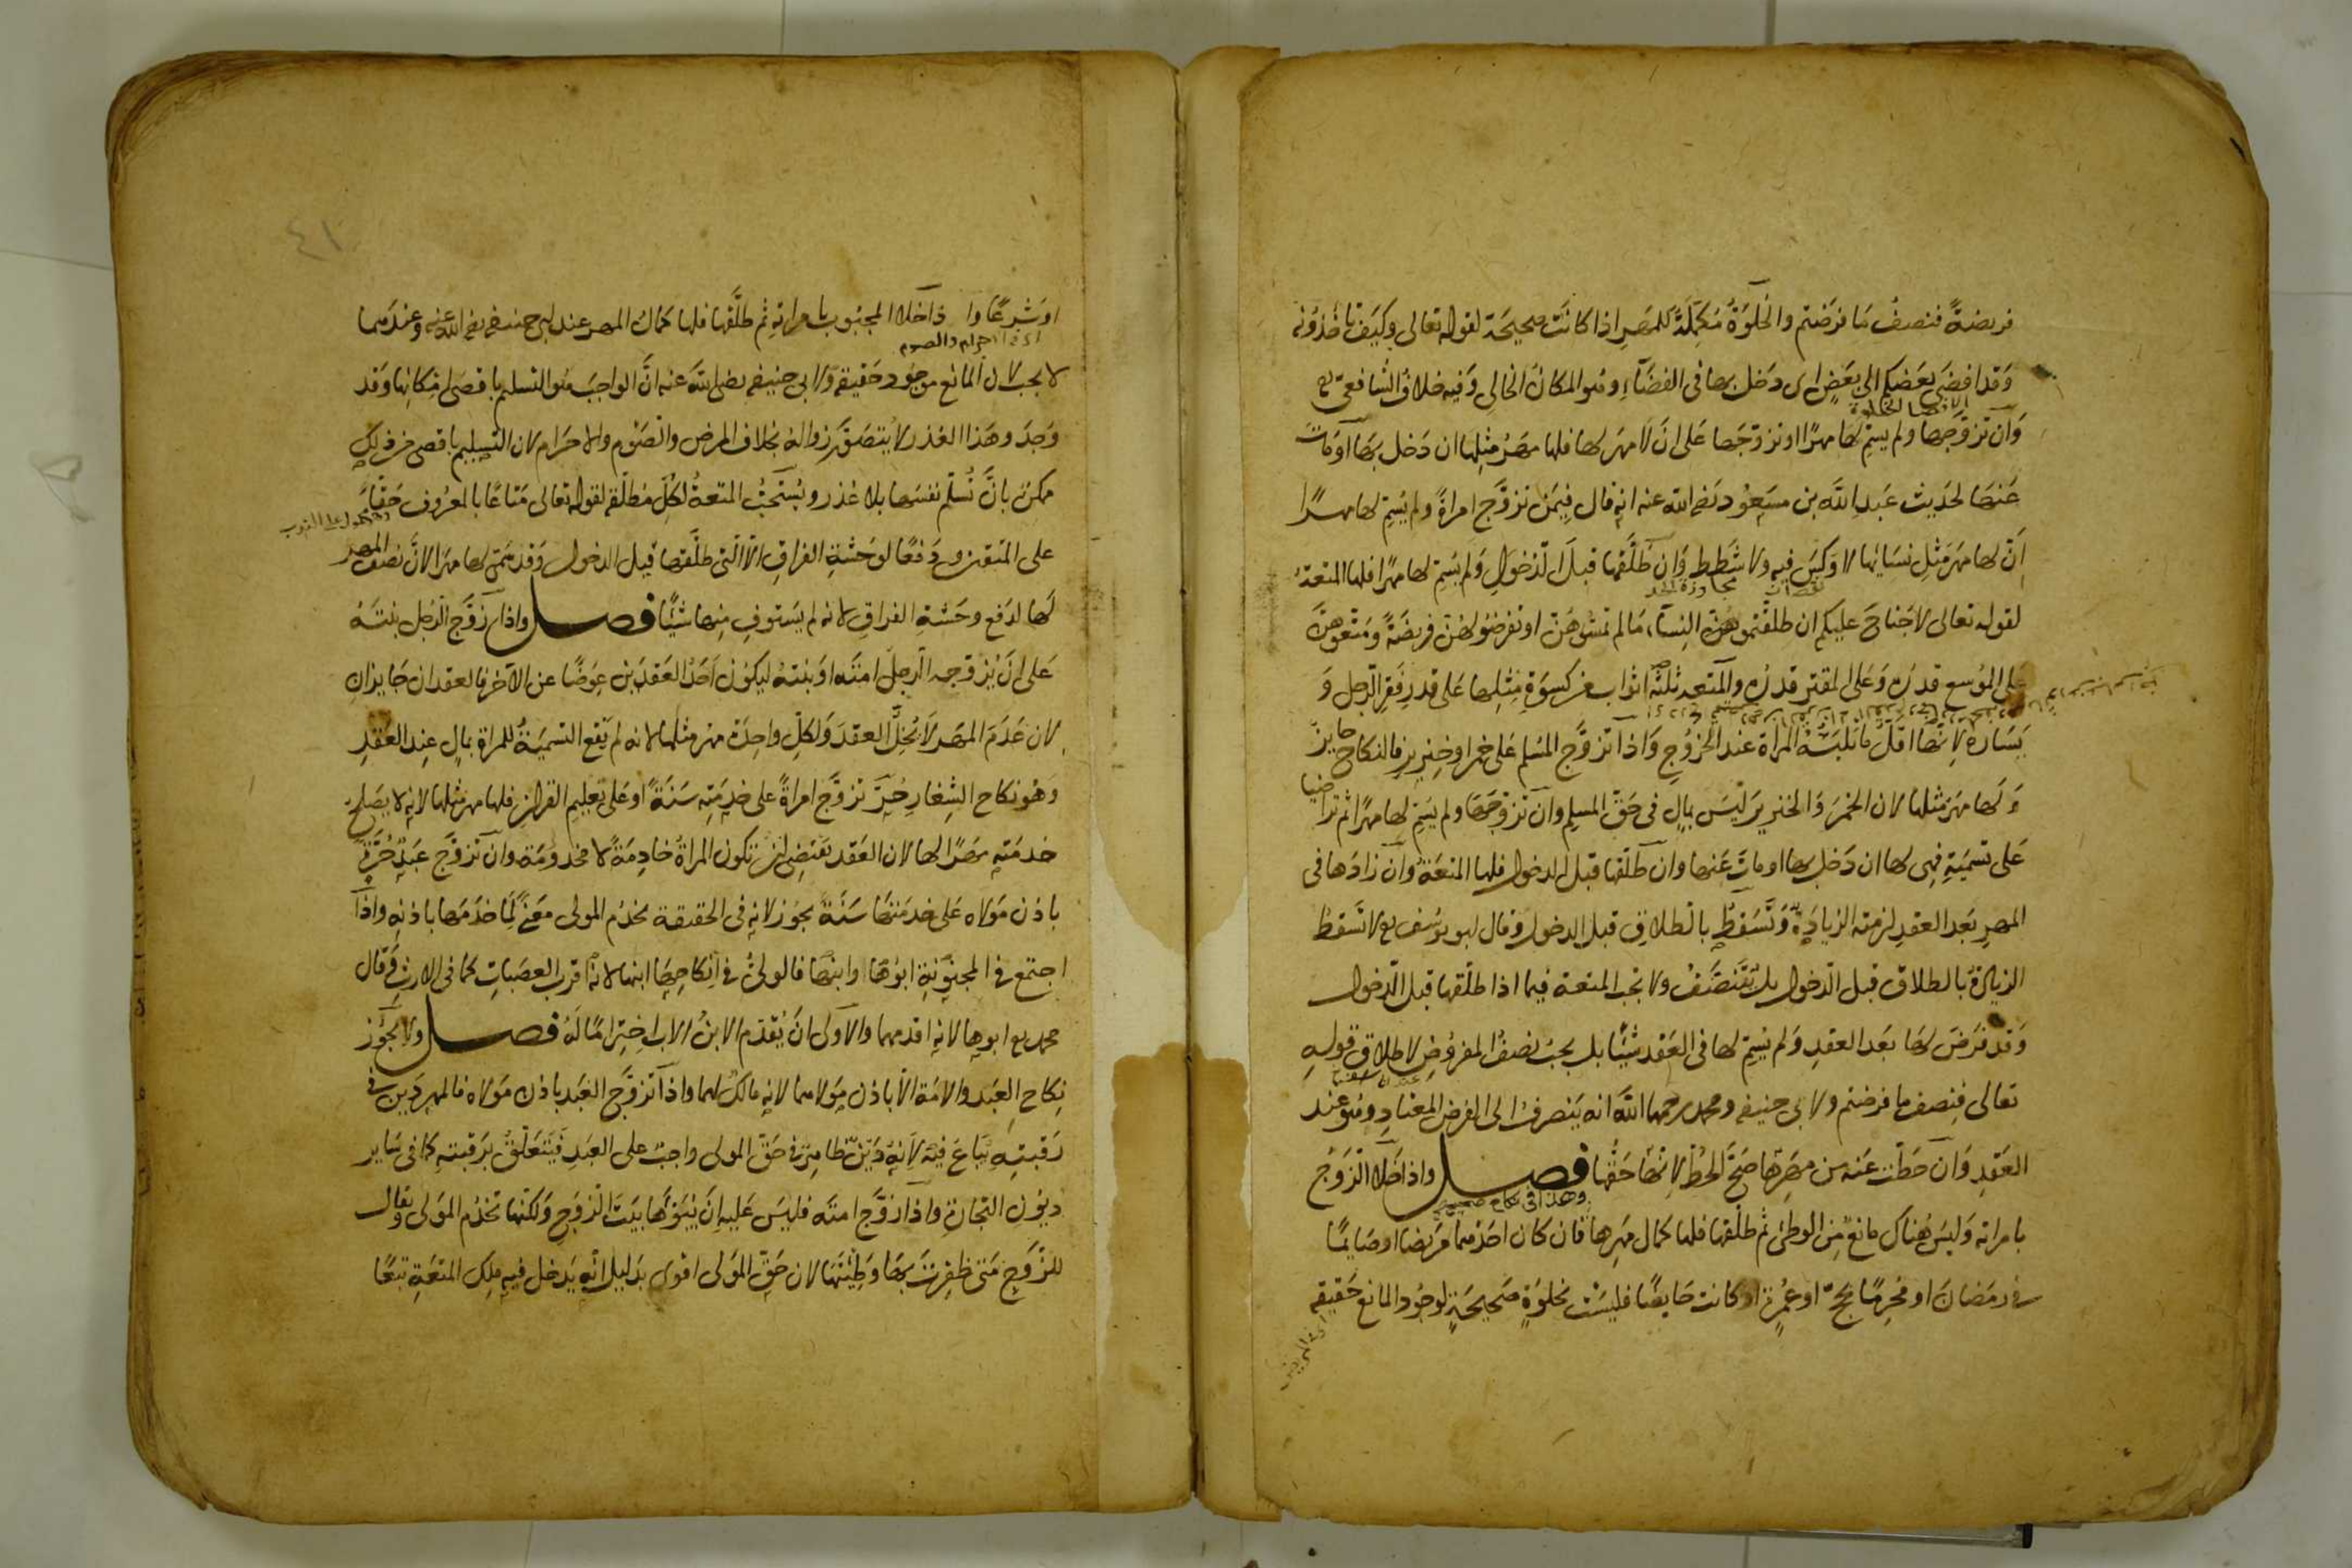 فريضةً فنصفُ مَا فرَضتم والخَلوَةُ مُكمِّلَةٌ للمَهرِ اذا كانَت صحيحَة لقوله تعالى وكيَفَ تأخذُونه
وَقد افضَى بعَضكم الى بعَضٍ اى دَخل بها فى الفضَآءِ وهُو المكانُ الخالى وَفيه خلافُ الشافعىّ رح
الافضا الخلوة
وَان تزوَّجها ولم يسمّ لها مهرًا او تزوّجَها عَلى ان لا مهَر لها فلها مهَرُ مثِلها ان دَخل بهَا اوَ مَاتَ
عَنهَا لحَديث عَبدِ اللّه بن مسَعُود رَضى اللّه عنه انه قال فيمَن تزوَّج امراةً ولم يُسَمِّ لها مهرًا
اَنّ لها مهرَ مثلِ نسَائها لا وَكسَ فيهِ ولا شطَط وَان طَلَّقَها قبلَ الدّخوَلِ وَلم يسَمِّ لها مهرًا فلها المتعَةُ
نقصان مجاوزة الحد
لقوله تعالى لا جَناحَ عليكم ان طلقتمُ النِسآءَ مَا لم تمسُّوهُنّ او تفرضُوا لهُنّ فريضَةً ومَتعوهُنّ
عَلى المُوسع قدرُه وَعَلى المقترِ قدرُه والمتعَة ثلثةُ اثواب من كِسوَةِ مثِلِها عَلى قدرِ فَقرِ الرّجل وَ
يسَاره لانّها اقلّ ما تلبَسُه المَراة عند الخرُوجِ وَاذا تزوَّج المسُلم عَلى خمرٍ او خنِزيرٍ فالنكاح جايز
وَلها مهَر مثلها لان الخمَر وَالخنزير ليَسَ بمالٍ فى حَقّ المسلم وان تزوّجهَا ولم يسَمِّ لها مهرًا ثم تراضيا
عَلى تسميَةٍ فهى لها ان دَخل بها او ماتَ عَنها وان طلّقها قبل الدخول فلها المتعَةُ وان زادَها فى
المهرِ بعَد العقدِ لزمته الزيادَةُ وَتَسَقطُ بالطلاقِ قبل الدخول وقال ابو يوُسُف رح لا تسَقطُ
الزيادَةُ بالطلاق قبل الدّخول بل تتنصَّفُ ولا تجبُ المتعة فيما اذا طلّقها قبل الدّخول
وَقد فرَضَ لهَا بعَد العقدِ وَلم يُسَمِّ لها فى العَقد شيئًا بل يجبُ نصفُ المفروُضِ لاطلاقِ قولِهِ
تعالى فنِصف ما فرضتم ولابى حنيفه ومحمد رحمهما اللّه انه ينَصرفُ الى الفرضِ المعتادِ وهُو عند
العَقدِ وَان حطّت عَنه من مهَرِها صَحَّ الحَطُّ لانّها حَقُّها فصـــل واذا خَلا الزّوَجُ
وهذا فى نكاح صحيح
بامراته وَليسَ هُناك مانعٌ مِن الوطئ ثم طلّقها فلها كمال مَهرِها فان كان احَدُهما مرَيضا او صَايمًا
فى رمَضانَ او مُحرِمًا بحجٍّ او عُمرةٍ او كانت حَايضًا فليسَتْ بخلوَةٍ صَحيحَةٍ لوجُود المانع حَقيقه
اى فى المرض
٤١
اوَ شرعًا واذا خلا المجبُوب بامراتهِ ثم طلَّقها فلها كمَالُ المهرِ عند ابى حنيفه رضى الله عنه وعندهما
اى فى الاحرام والصوم
لا يجب لان المانع موجُود حَقيقه ولابى حنيفه رضى اللّه عنه انَّ الواجبَ هُو التسليم باقصَى امكانِها وَقد
وَجدَ وهَذا العذر لا يُتصَوَّر زواله بخلاف المرض والصَوم والاحرَام لان التسليم باقصى من ذلك
ممكن بانَّ تُسلّم نفسَها بلا عُذر ويُستَحبُّ المتعةُ لكُلِّ مطلّقه لقوله تعالى متَاعًا بالمعرُوف حَقًّا
محمول على الندب
على المتقين ودَفعًا لوحَشةِ الفراق الّا الّتى طلّقها قبل الدخول وَقد سَمّى لها مهَرا لانَّ نصفَ المهر
لَها لدَفع وحَشةِ الفراقِ لانه لم يسَتوفِ منِها شيئًا فصـــل واذا زوَّج الرّجُل بنتَهُ
عَلى انَ يزَوّجه الرجلُ امتَه او بنتَه ليكوُن احَدُ العَقدَين عِوَضًا عن الآخر فالعقدان جَايزانِ
لان عَدَمَ المهَر لا يُخِلُّ العقدَ وَلكلِّ واحِدَة مهرَ مثلها لانه لم يَقع التسميَةُ للمراة بمالٍ عِند العَقدِ
وَهوُ نكاح الشِغارِ حُرٌّ تزوَّج امراةً على خدِمَتِه سَنَةً او عَلى تعليمِ القرانِ فلها مهر مثلها لانه لا يصَلح
خدمَته مهَرًا لها لان العَقد يقتضى ان تكون المراةُ خادِمَةً لا مخدومَة وان تزوَّج عَبدٌ حُرّةً
باذن مَولاه عَلى خدمَتها سَنَةً يجوُز لانهِ فى الحقيقة يخدُم المولى مَعنًى لَمّا خدَمَها باذنهِ واذا
اجتمع فى المجنوُنةِ ابوُها وابنهَا فالولىُّ فى انكاحِهَا ابنها لانه اقرب العصَباتِ كما فى الارثِ وَقال
محمد رح ابوهِا لانهِ اقدمهما والاولى انَ يُقدّم الابنُ الاب احِترامًا لَهُ فصـــل ولا يجَوُز
نِكاح العبَد والامَة الّا باذن موَلاهما لانهِ مالكٌ لهما واذا تزوَّج العَبد باذن مَولاه فالمهر دَين فى
رَقبتِهِ يُبَاعَ فيه لانهُ دَيَنٌ ظاهرٌ فى حَقّ المولى واجبٌ على العَبدِ فَيتَعَلَّقُ برَقبتهِ كمَا فى سَاير
ديوُنِ التجارة واذا زوَّج امتَه فليسَ عَليهِ انَ يُبَوِّأها بيتَ الزّوج وَلكنّها تخدُم المَولى ويقال
للزّوجِ مَتى ظفِرتَ بها وَطِئتَها لان حَقّ المَولى اقوى بدَليل انّه يَدخل فيهِ ملِك المتعَةِ تبَعًا